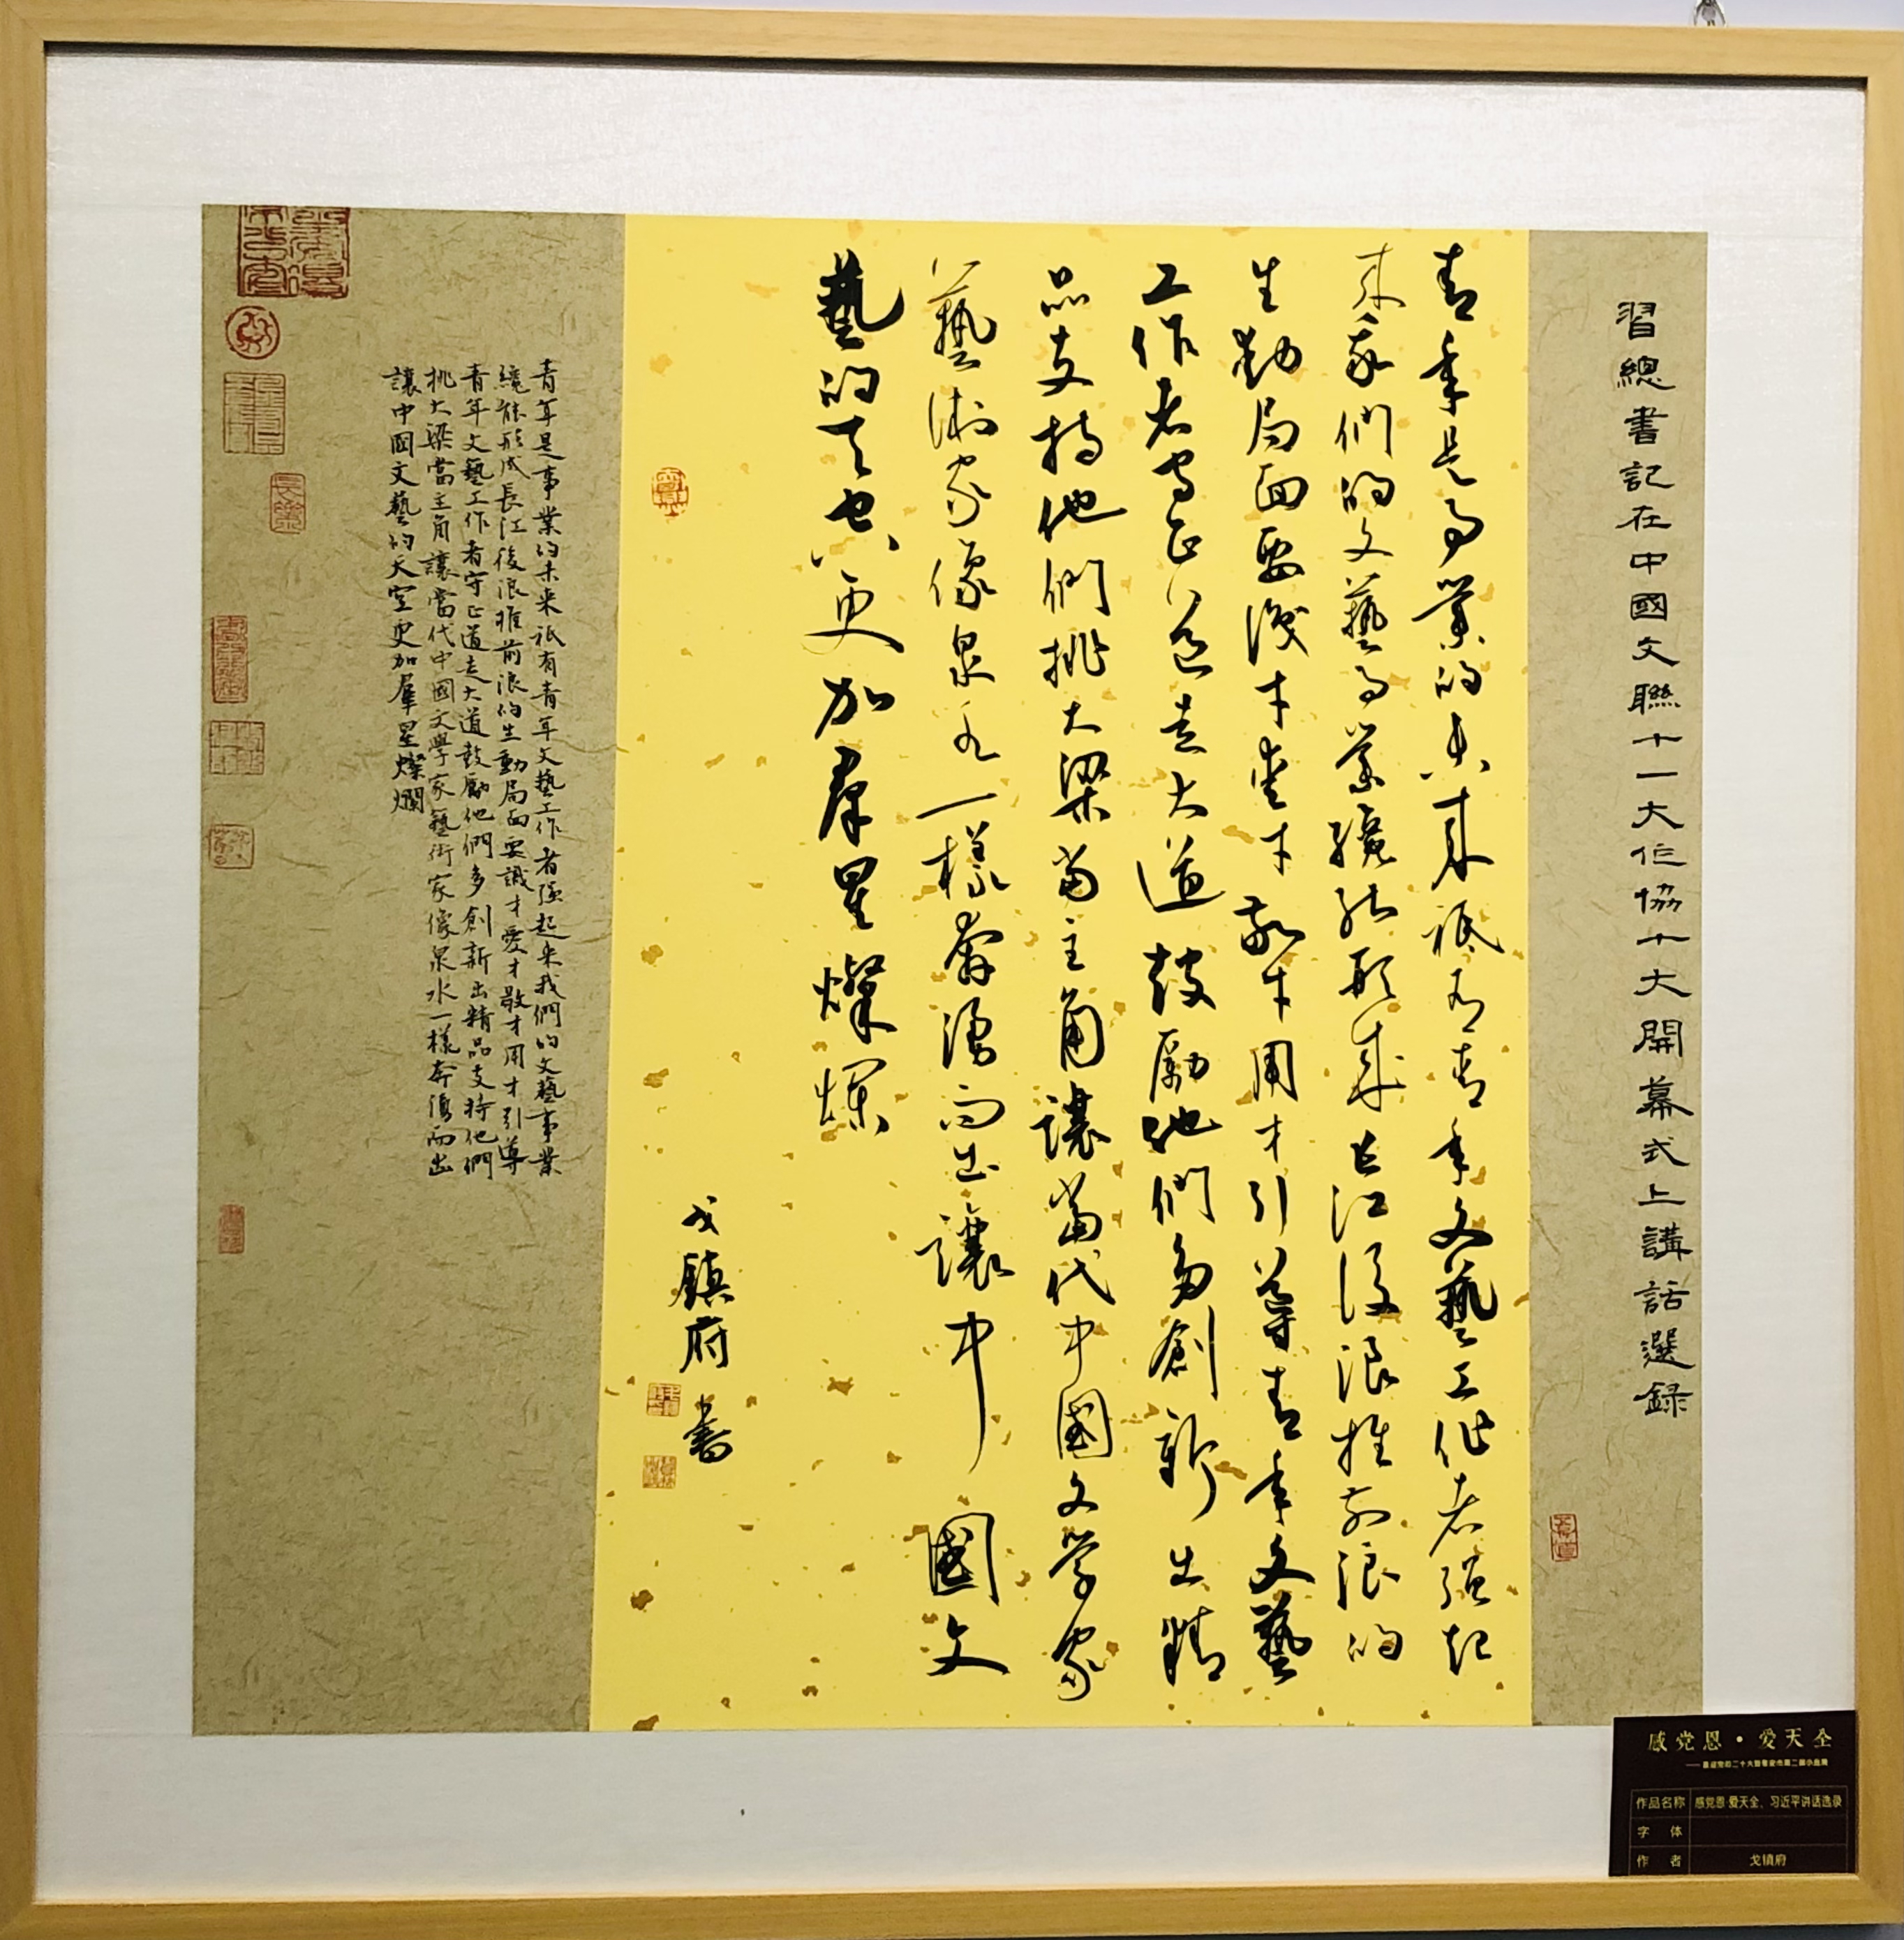 習總書記在中國文聯十一大作協十大開幕式上講話選録
青年是事業的未來祇有青年文藝工作者强起
來我們的文藝事業纔能形成長江後浪推前浪的
生動局面要識才愛才敬才用才引導青年文藝
工作者守正道走大道鼓勵他們多創新出精
品支持他們挑大梁當主角讓當代中國文学家
藝術家像泉水一樣奔湧而出讓中國文
藝的天空更加群星燦爛
戈鎮府書
青年是事業的未来祇有青年文藝工作者强起来我們的文藝事業
纔能形成長江後浪推前浪的生動局面要識才愛才敬才用才引導
青年文藝工作者守正道走大道鼓勵他們多創新出精品支持他們
挑大梁當主角讓當代中國文學家藝術家像泉水一樣奔湧而出
讓中國文藝的天空更加羣星燦爛
感党恩·爱天全
作品名称 感党恩·爱天全，习近平讲话选录
字体
作者 戈镇府